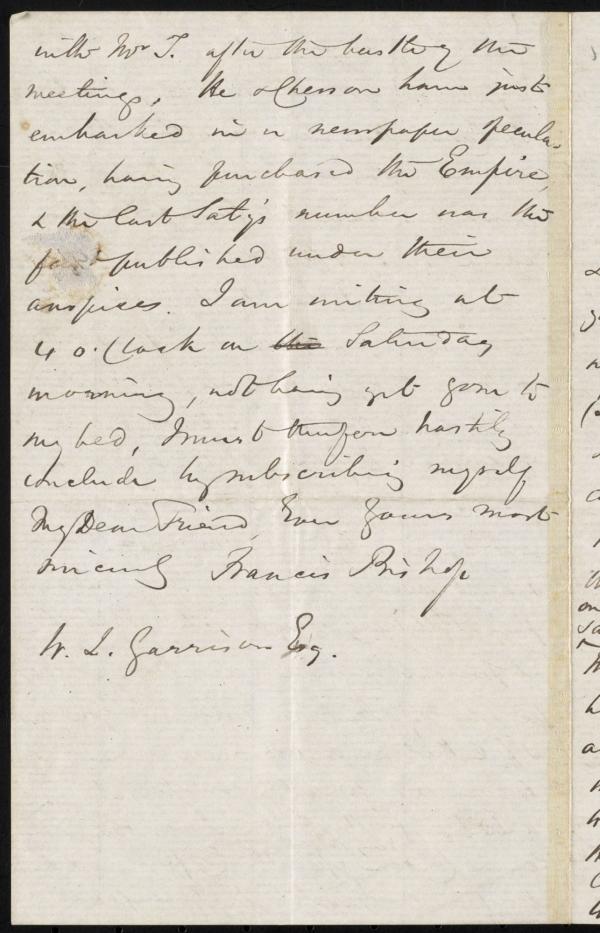 with Mr T. after the bustle of the
meetings. He & Chesson have just
embarked in a newspaper specula-
tion, having purchased the Empire,
& the last Saty's number was the
first published under their
auspices. I am writing at
4 o.Clock on the Saturday
morning, not having yet gone to
my bed, I must therefore hastily
conclude by subscribing myself
My Dear Friend, Ever yours most
sincerely Francis Bishop
W. L. Garrison Esq.